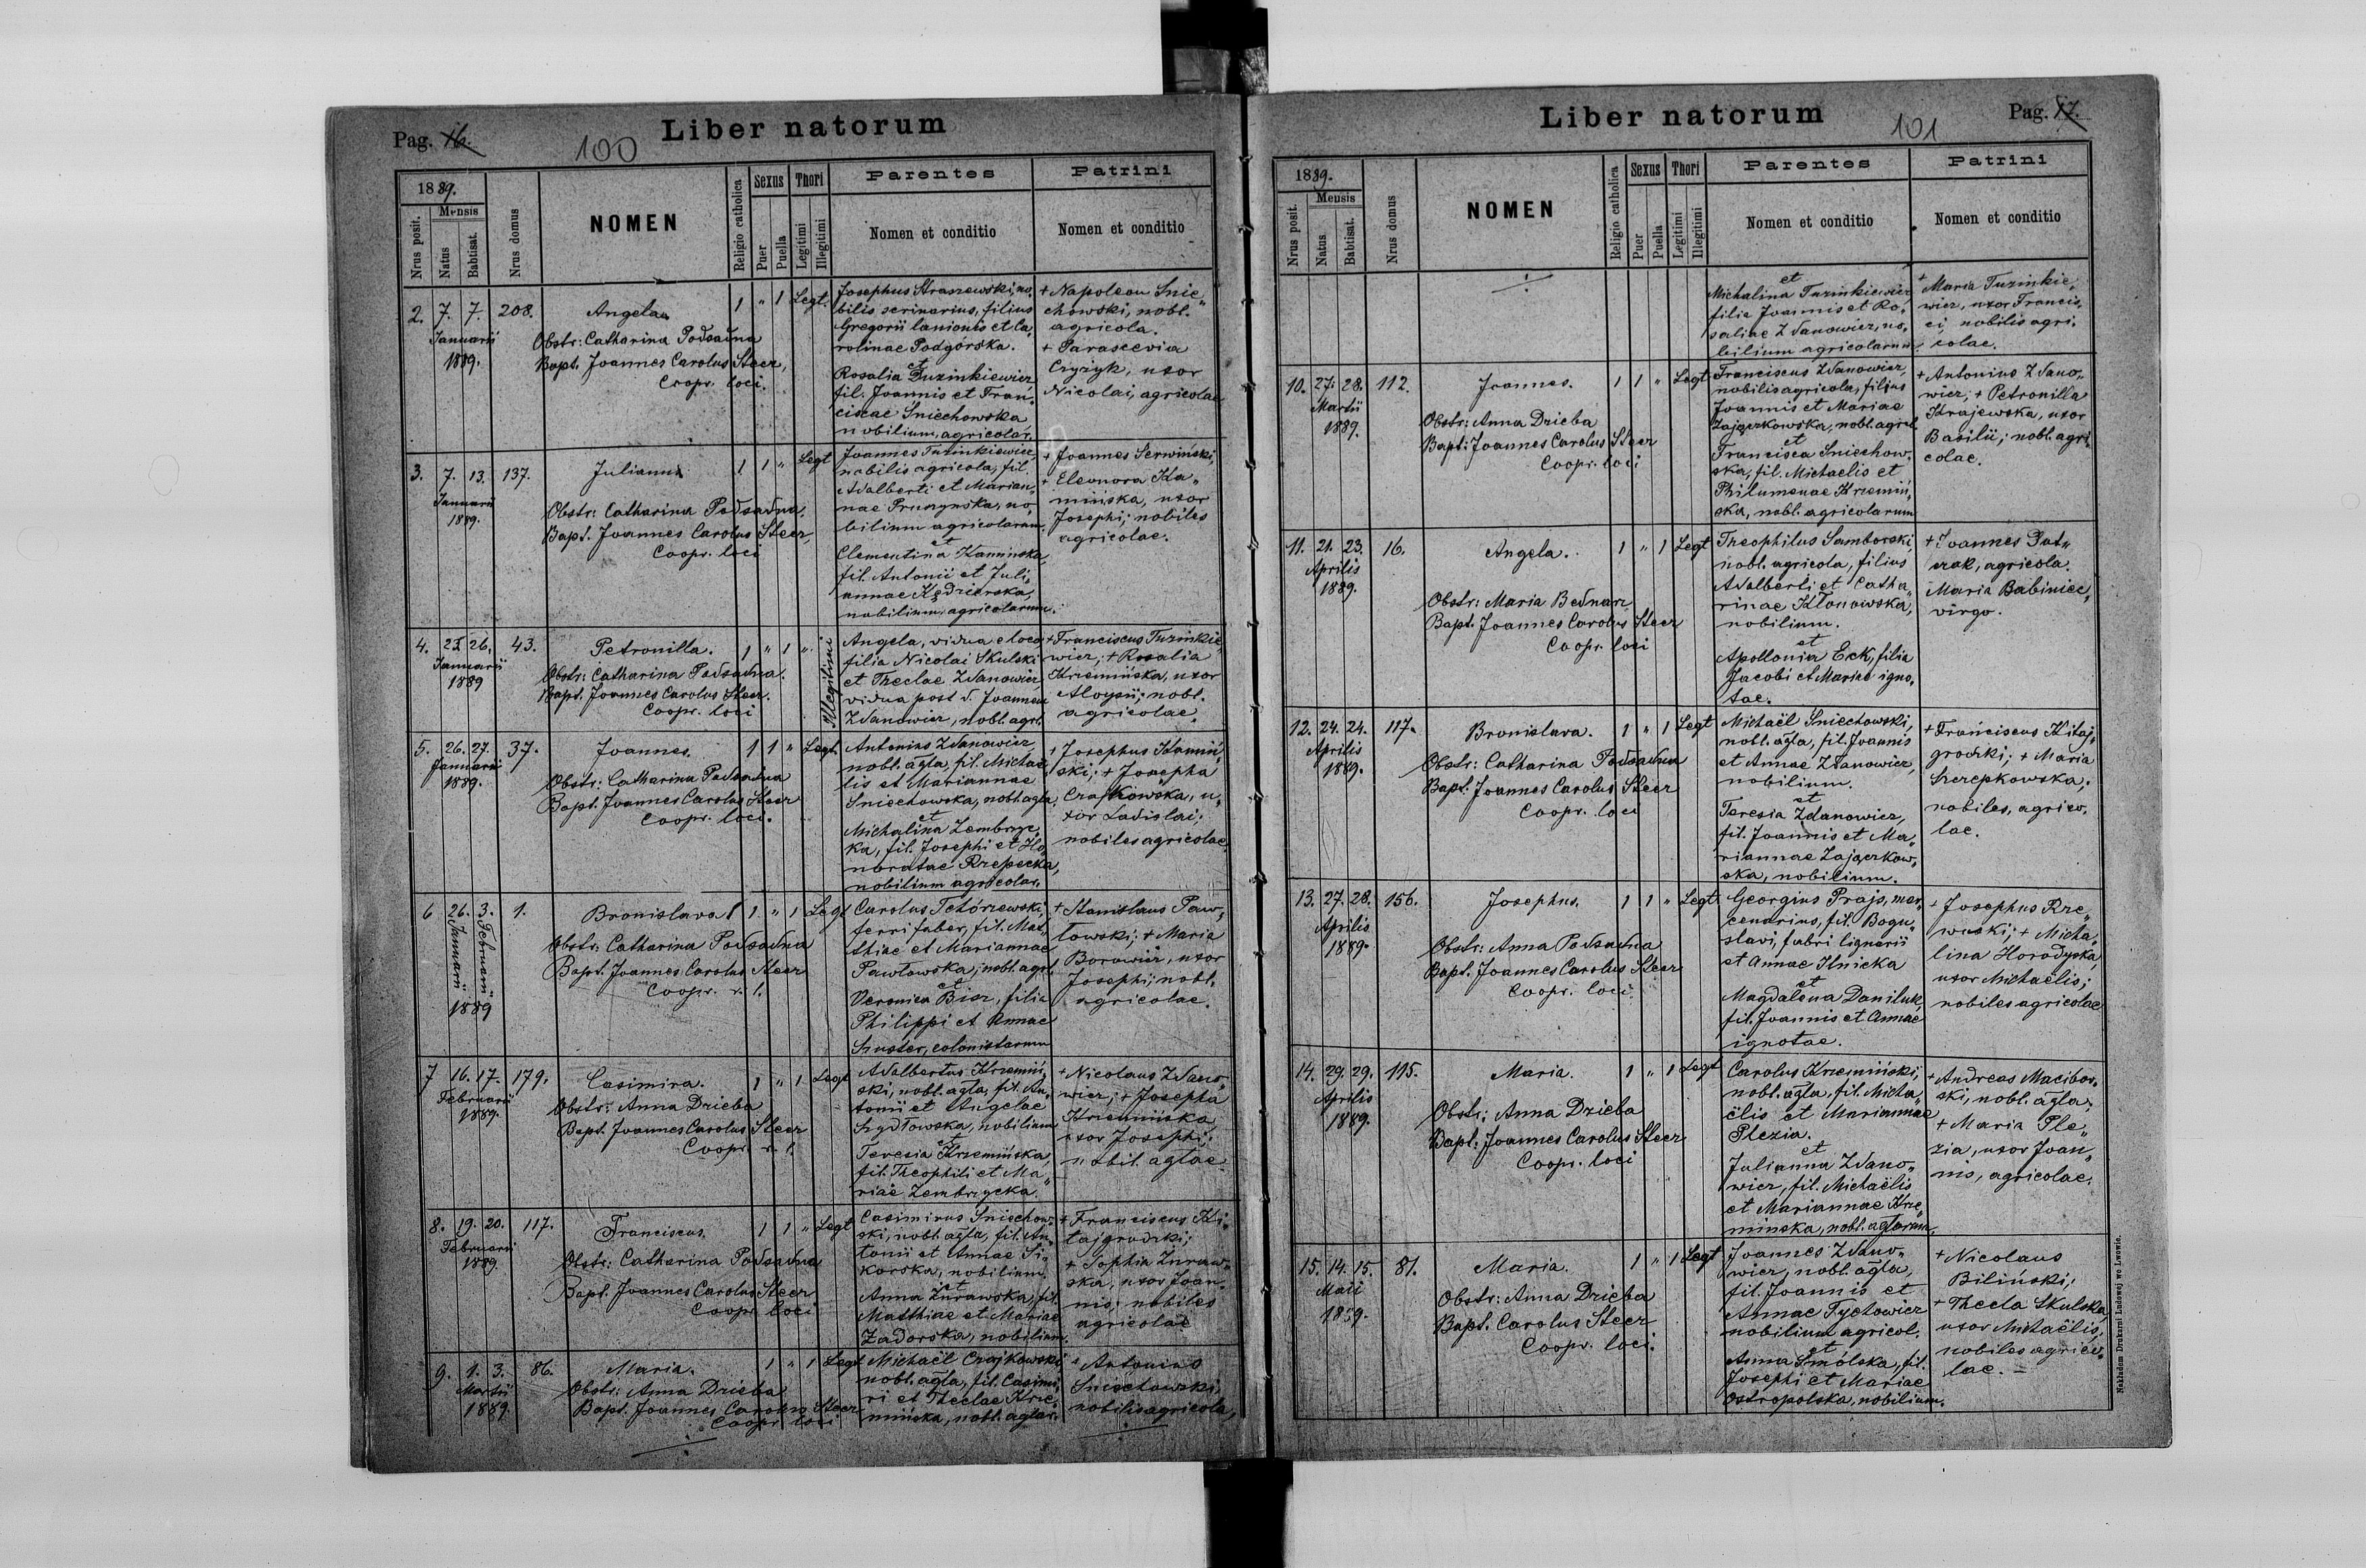 Pag. 16.
100
Liber natorum
1889.
Nrus posit.
Mensis
Natus
Babtisat.
Nrus domus
NOMEN
Religio catholica
Sexus
Puer
Puella
Thori
Legitimi
Illegitimi
Parentes
Nomen et conditio
Patrini
Nomen et conditio
2. 7. 7. 208.
Januarii
1889.
Angela
Obstr: Catharina Podsadna
Bapt. Joannes Carolus Steer,
Coopr. loci.
1 " 1 Legt.
Josephus Straszewski, no„
bilis scrinarius, filius
Gregorii lanionis et Ca„
rolinae Podgórska.
et
Rosalia Tuzinkiewicz
fil. Joannis et Fran„
ciscae Śniechowska
nobilium, agricolar.
+ Napoleon Śnie„
chowski, nobl.
agricola.
+ Parascevia
Czyżyk, uxor
Nicolai, agricolae
3. 7. 13. 137.
Januarii
1889.
Julianus
Obstr: Catharina Podsadna.
Bapt. Joannes Carolus Steer,
Coopr. loci
1 1 " Legt
Joannes Tuzinkiewicz
nobilis agricola, fil.
Adalberti et Marian„
nae Pruszynska, no„
bilium agricolarum,
et
Clementina Kaminska,
fil. Antonii et Juli„
annae Kędzierska,
nobilium, agricolarum.
+ Joannes Serwiński,
+ Eleonora Ka„
mińska, uxor
Josephi; nobiles
agricolae.
4. 25. 26. 43.
Januarii
1889
Petronilla.
Obstr: Catharina Podsadna.
Bapt. Joannes Carolus Steer.
Coopr. loci
1 " 1 " Illegitimi
Angela, vidua e loco
filia Nicolai Skulski
et Theclae Zdanowicz,
vidua post d. Joannem
Zdanowicz, nobl. agrl.
+ Franciscus Tuzinkie„
wicz; + Rosalia
Krzemińska, uxor
Aloysii; nobl.
agricolae.
5. 26. 27. 37.
Januarii
1889.
Joannes.
Obstr: Catharina Podsadna
Bapt. Joannes Carolus Steer
Coopr. loci.
1 1 " Legt.
Antonius Zdanowicz
nobl. agla, fil. Michae„
lis et Mariannae
Sniechowska, nobl. agla,
et
Michalina Zembrzyc„
ka, fil. Josephi et Ho„
noratae Rzepecka,
nobilium agricolar.
+ Josephus Kamiń„
ski; + Josepha
Czajkowska, u„
xor Ladislai;
nobiles agricolae.
6 26. 3. 1.
Januarii Februarii
1889
Bronislava
Obstr: Catharina Podsadna
Bapt. Joannes Carolus Steer
Coopr. r. l.
1 " 1 Legt
Carolus Tchórzewski,
ferri faber, fil. Mat„
thiae et Mariannae
Pawłowska, nobl. agrl.
et
Veronica Bier, filia
Philippi et Annae
Szuster, colonistarum
+ Stanislaus Paw„
łowski; + Maria
Borowicz, uxor
Josephi; nobl.
agricolae.
7 16. 17. 179.
Februarii
1889.
Casimira.
Obstr: Anna Dzieba
Bapt. Joannes Carolus Steer
Coopr. r. l.
1 " 1 Legt
Adalbertus Krzemiń„
ski, nobl. agla, fil. An„
tonii et Angelae
Szydłowska, nobilium
et
Teresia Krzemińska
fil. Theophili et Ma„
riae Zembrzycka.
+ Nicolaus Zdano„
wicz; + Josepha
Krzemińska
uxor Josephi;
nobil. aglae.
8. 19. 20. 117.
Februarii
1889.
Franciscus.
Obstr: Catharina Podsadna
Bapt. Joannes Carolus Steer
Coopr. loci
1 1 " Legt
Casimirus Śniechow„
ski, nobl. agla, fil. An„
tonii et Annae Si„
korska, nobilium.
et
Anna Żurawska, fil.
Matthiae et Mariae
Zadorska, nobilium.
+ Franciscus Ki„
tajgrodzki;
+ Sophia Żuraw„
ska, uxor Joan„
nis; nobiles
agricolae
9. 1. 3. 86.
Martii
1889.
Maria.
Obstr: Anna Dzieba
Bapt. Joannes Carolus Steer
Coopr. loci
1 " 1 Legt
Michaël Czajkowski
nobl. agla, fil. Casimi„
ri et Theclae Krze„
mińska, nobl. aglar.
+ Antonius
Sniechowski
nobilis agricola,
Liber natorum
101
Pag. 17.
1889.
Nrus posit.
Mensis
Natus
Babtisat.
Nrus domus
NOMEN
Religio catholica
Sexus
Puer
Puella
Thori
Legitimi
Illegitimi
Parentes
Nomen et conditio
Patrini
Nomen et conditio
et
Michalina Tuzinkiewicz
filia Joannis et Ro„
saliae Zdanowicz, no„
bilium agricolarum.
+ Maria Tuzinkie„
wicz, uxor Francis„
ci, nobilis agri„
colae.
10. 27. 28. 112.
Martii
1889.
Joannes.
Obstr: Anna Dzieba
Bapt: Joannes Carolus Steer
Coopr. loci
1 1 " Legt.
Franciscus Zdanowicz,
nobilis agricola, filius
Joannis et Mariae
Zajączkowska, nobl. agrl.
et
Francisca Sniechow„
ska, fil. Michaelis et
Philumenae Krzemiń„
ska, nobl. agricolarum
+ Antonius Zdano„
wicz; + Petronilla
Krajewska, uxor
Basilii; nobl. agri„
colae.
11. 21. 23. 16.
Aprilis
1889.
Angela.
Obstr: Maria Bednarz
Bapt. Joannes Carolus Steer
Coopr. loci
1 " 1 Legt
Theophilus Samborski,
nobl. agricola, filius
Adalberti et Catha„
rinae Kłonowska,
nobilium.
et
Apollonia Eck, filia
Jacobi et Mariae igno„
tae.
+ Joannes Pat„
rzak, agricola.
Maria Babiniec,
virgo.
12. 24. 24. 117.
Aprilis
1889.
Bronislava.
Obstr: Catharina Podsadna
Bapt. Joannes Carolus Steer
Coopr. loci
1 " 1 Legt
Michaël Śniechowski,
nobl. agla, fil. Joannis
et Annae Zdanowicz,
nobilium.
et
Teresia Zdanowicz,
fil. Joannis et Ma„
riannae Zajączkow„
ska, nobilium.
+ Franciscus Kitaj„
grodzki; + Maria
Szczepkowska;
nobiles, agrico„
lae.
13. 27. 28. 156.
Aprilis
1889.
Josephus.
Obstr: Anna Podsadna
Bapt. Joannes Carolus Steer
Coopr. loci.
1 1 " Legt.
Georgius Prajs, mer„
cenarius, fil. Bogu„
slavi, fabri lignarii
et Annae Ilnicka
et
Magdalena Daniluk,
fil. Joannis et Annae
ignotae.
+ Josephus Rze„
wuski; + Micha„
lina Horodyska,
uxor Michaëlis;
nobiles agricolae
14. 29. 29. 115.
Aprilis
1889.
Maria.
Obstr: Anna Dzieba
Bapt. Joannes Carolus Steer
Coopr. loci
1 " 1 Legt
Carolus Krzemiński,
nobl. agla, fil. Micha„
ëlis et Mariannae
Plezia.
et
Julianna Zdano„
wicz, fil. Michaëlis
et Mariannae Krze„
minska, nobl. aglarum.
+ Andreas Macibor„
ski, nobl. agla;
+ Maria Ple„
zia, uxor Joan„
nis, agricolae.
15. 14. 15. 81.
Maii
1889.
Maria.
Obstr: Anna Dzieba
Bapt. Carolus Steer
Coopr. loci.
1 " 1 Legt
Joannes Zdano„
wicz, nobl. agla,
fil. Joannis et
Annae Tychowicz
nobilium agricol.
et
Anna Smólska, fil.
Josephi et Mariae
Ostropolska, nobilium.
+ Nicolaus
Biliński;
+ Thecla Skulska,
uxor Michaëlis;
nobiles agrico„
lae.
Nakładem Drukarni Ludowej we Lwowie.